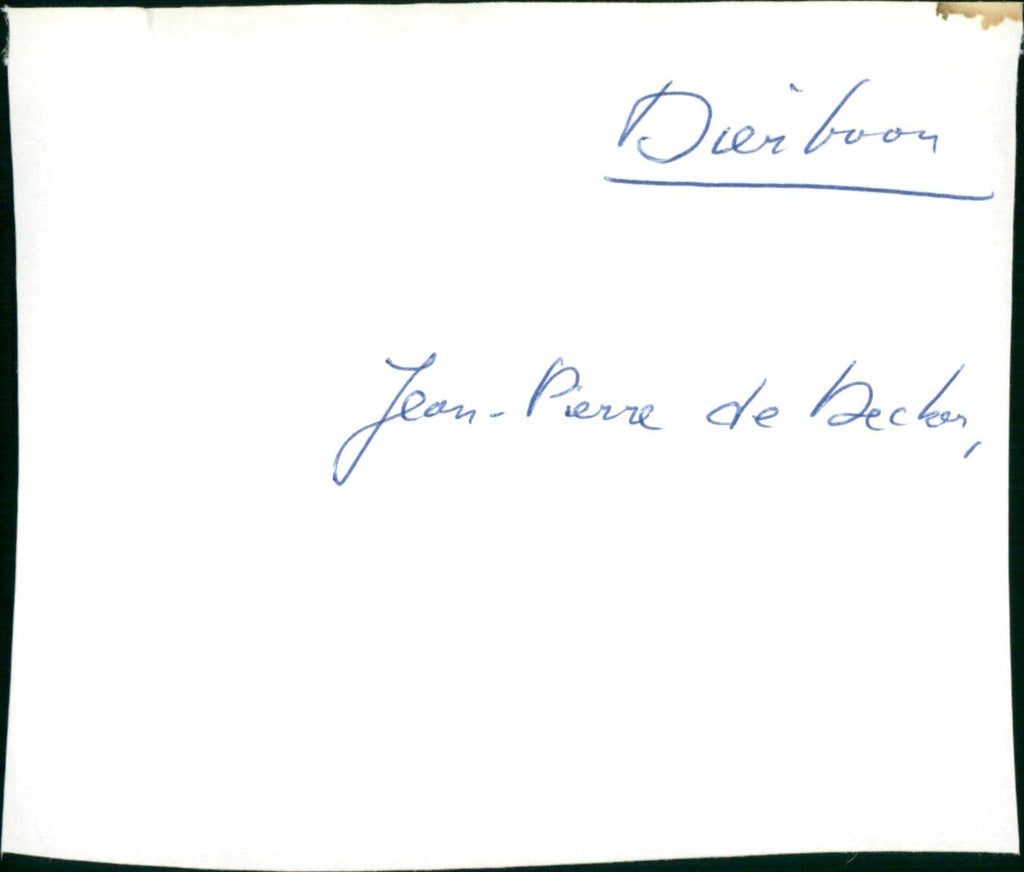 Dierboon
Jean-Pierre de Decker,